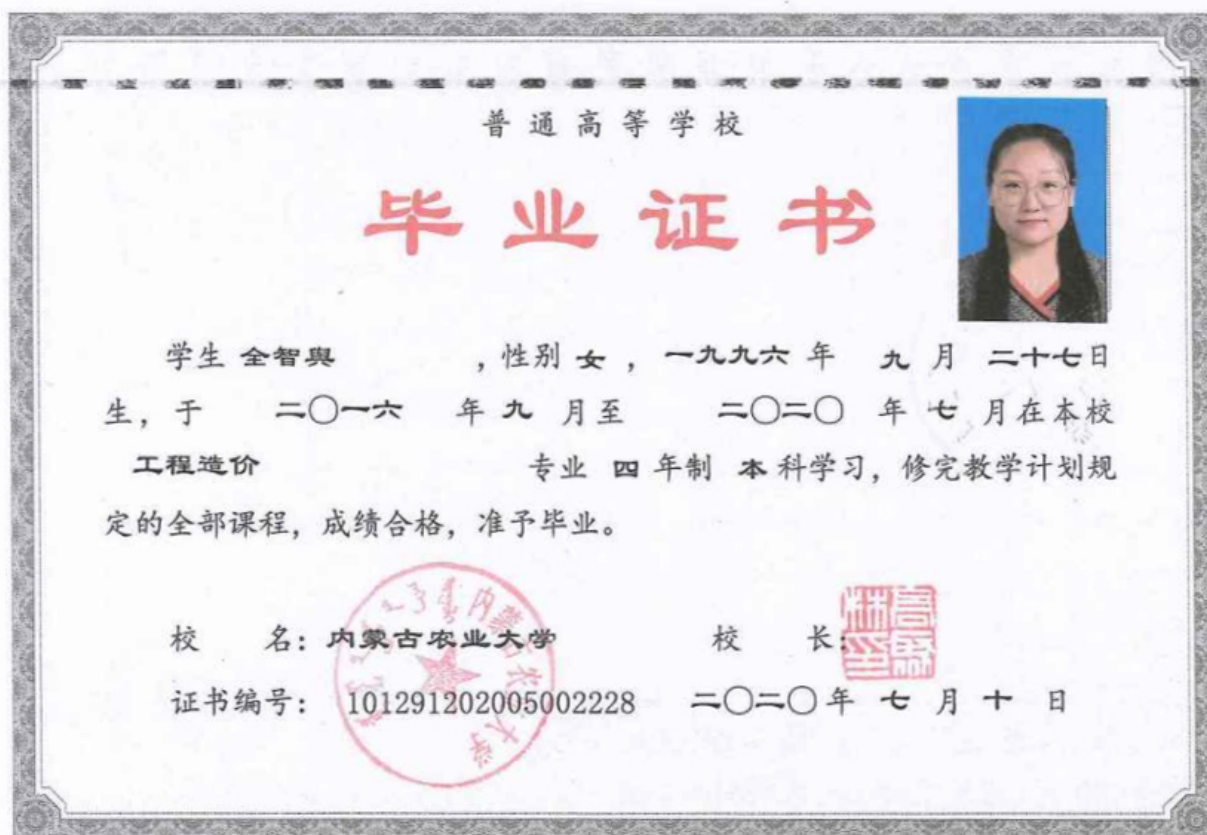 普通高等学校
毕业证书
学生 全智舆 ，性别 女 ， 一九九六 年 九 月 二十七日
生，于 二〇一六 年 九 月至 二〇二〇 年 七 月在本校
工程造价 专业 四 年制 本 科学习，修完教学计划规
定的全部课程，成绩合格，准予毕业。
校 名：内蒙古农业大学 校 长：
证书编号： 101291202005002228 二〇二〇年 七 月 十 日
内蒙古农业大学